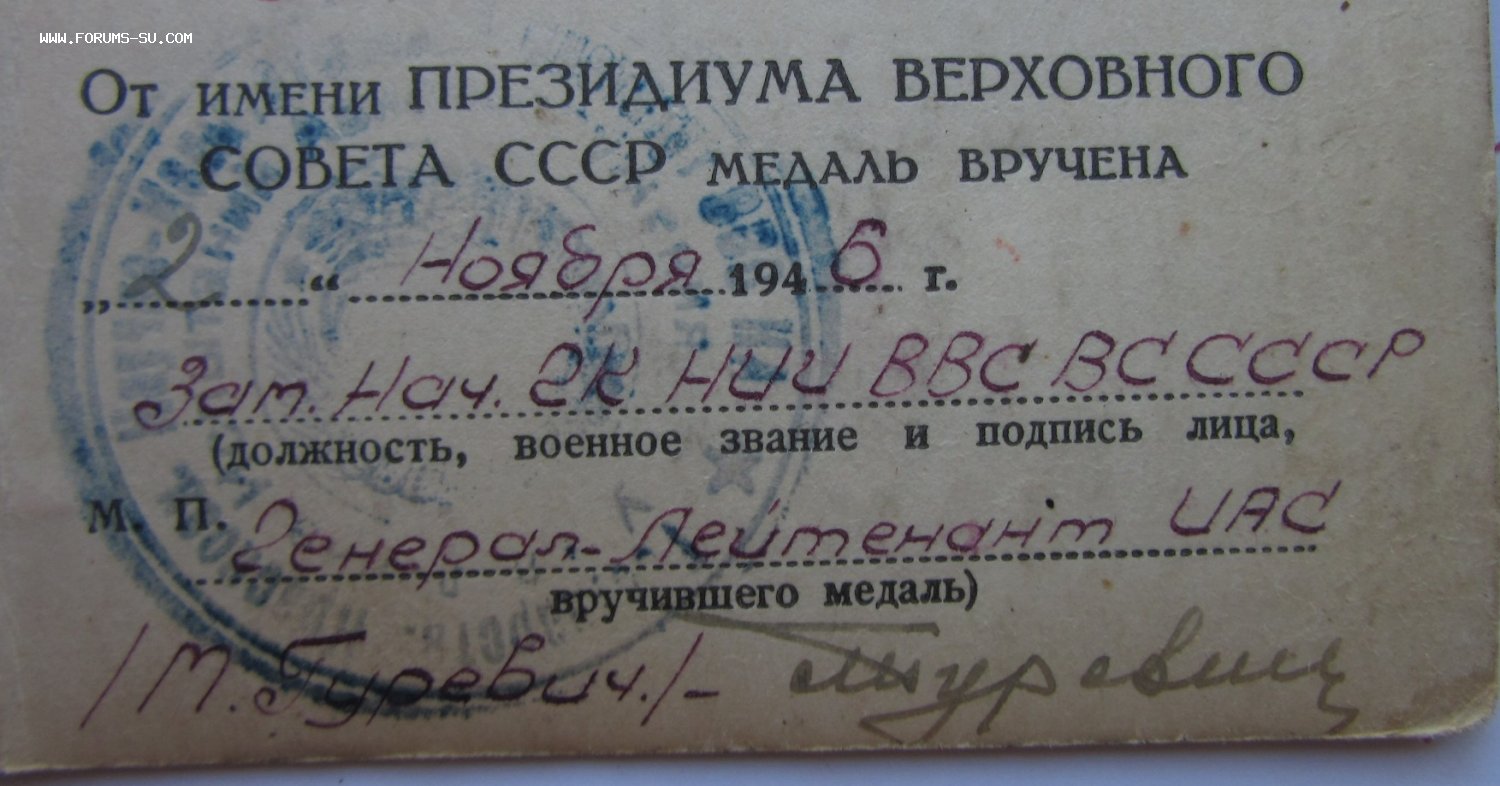 WWW.FORUMS-SU.COM
От имени ПРЕЗИДИУМА ВЕРХОВНОГО
СОВЕТА СССР медаль вручена
„2“ Ноября 1946 г.
Зам. Нач. ГК НИИ ВВС ВС СССР
(должность, военное звание и подпись лица,
М. П. Генерал-Лейтенант ИАС
вручившего медаль)
/М. Гуревич./- Гуревич